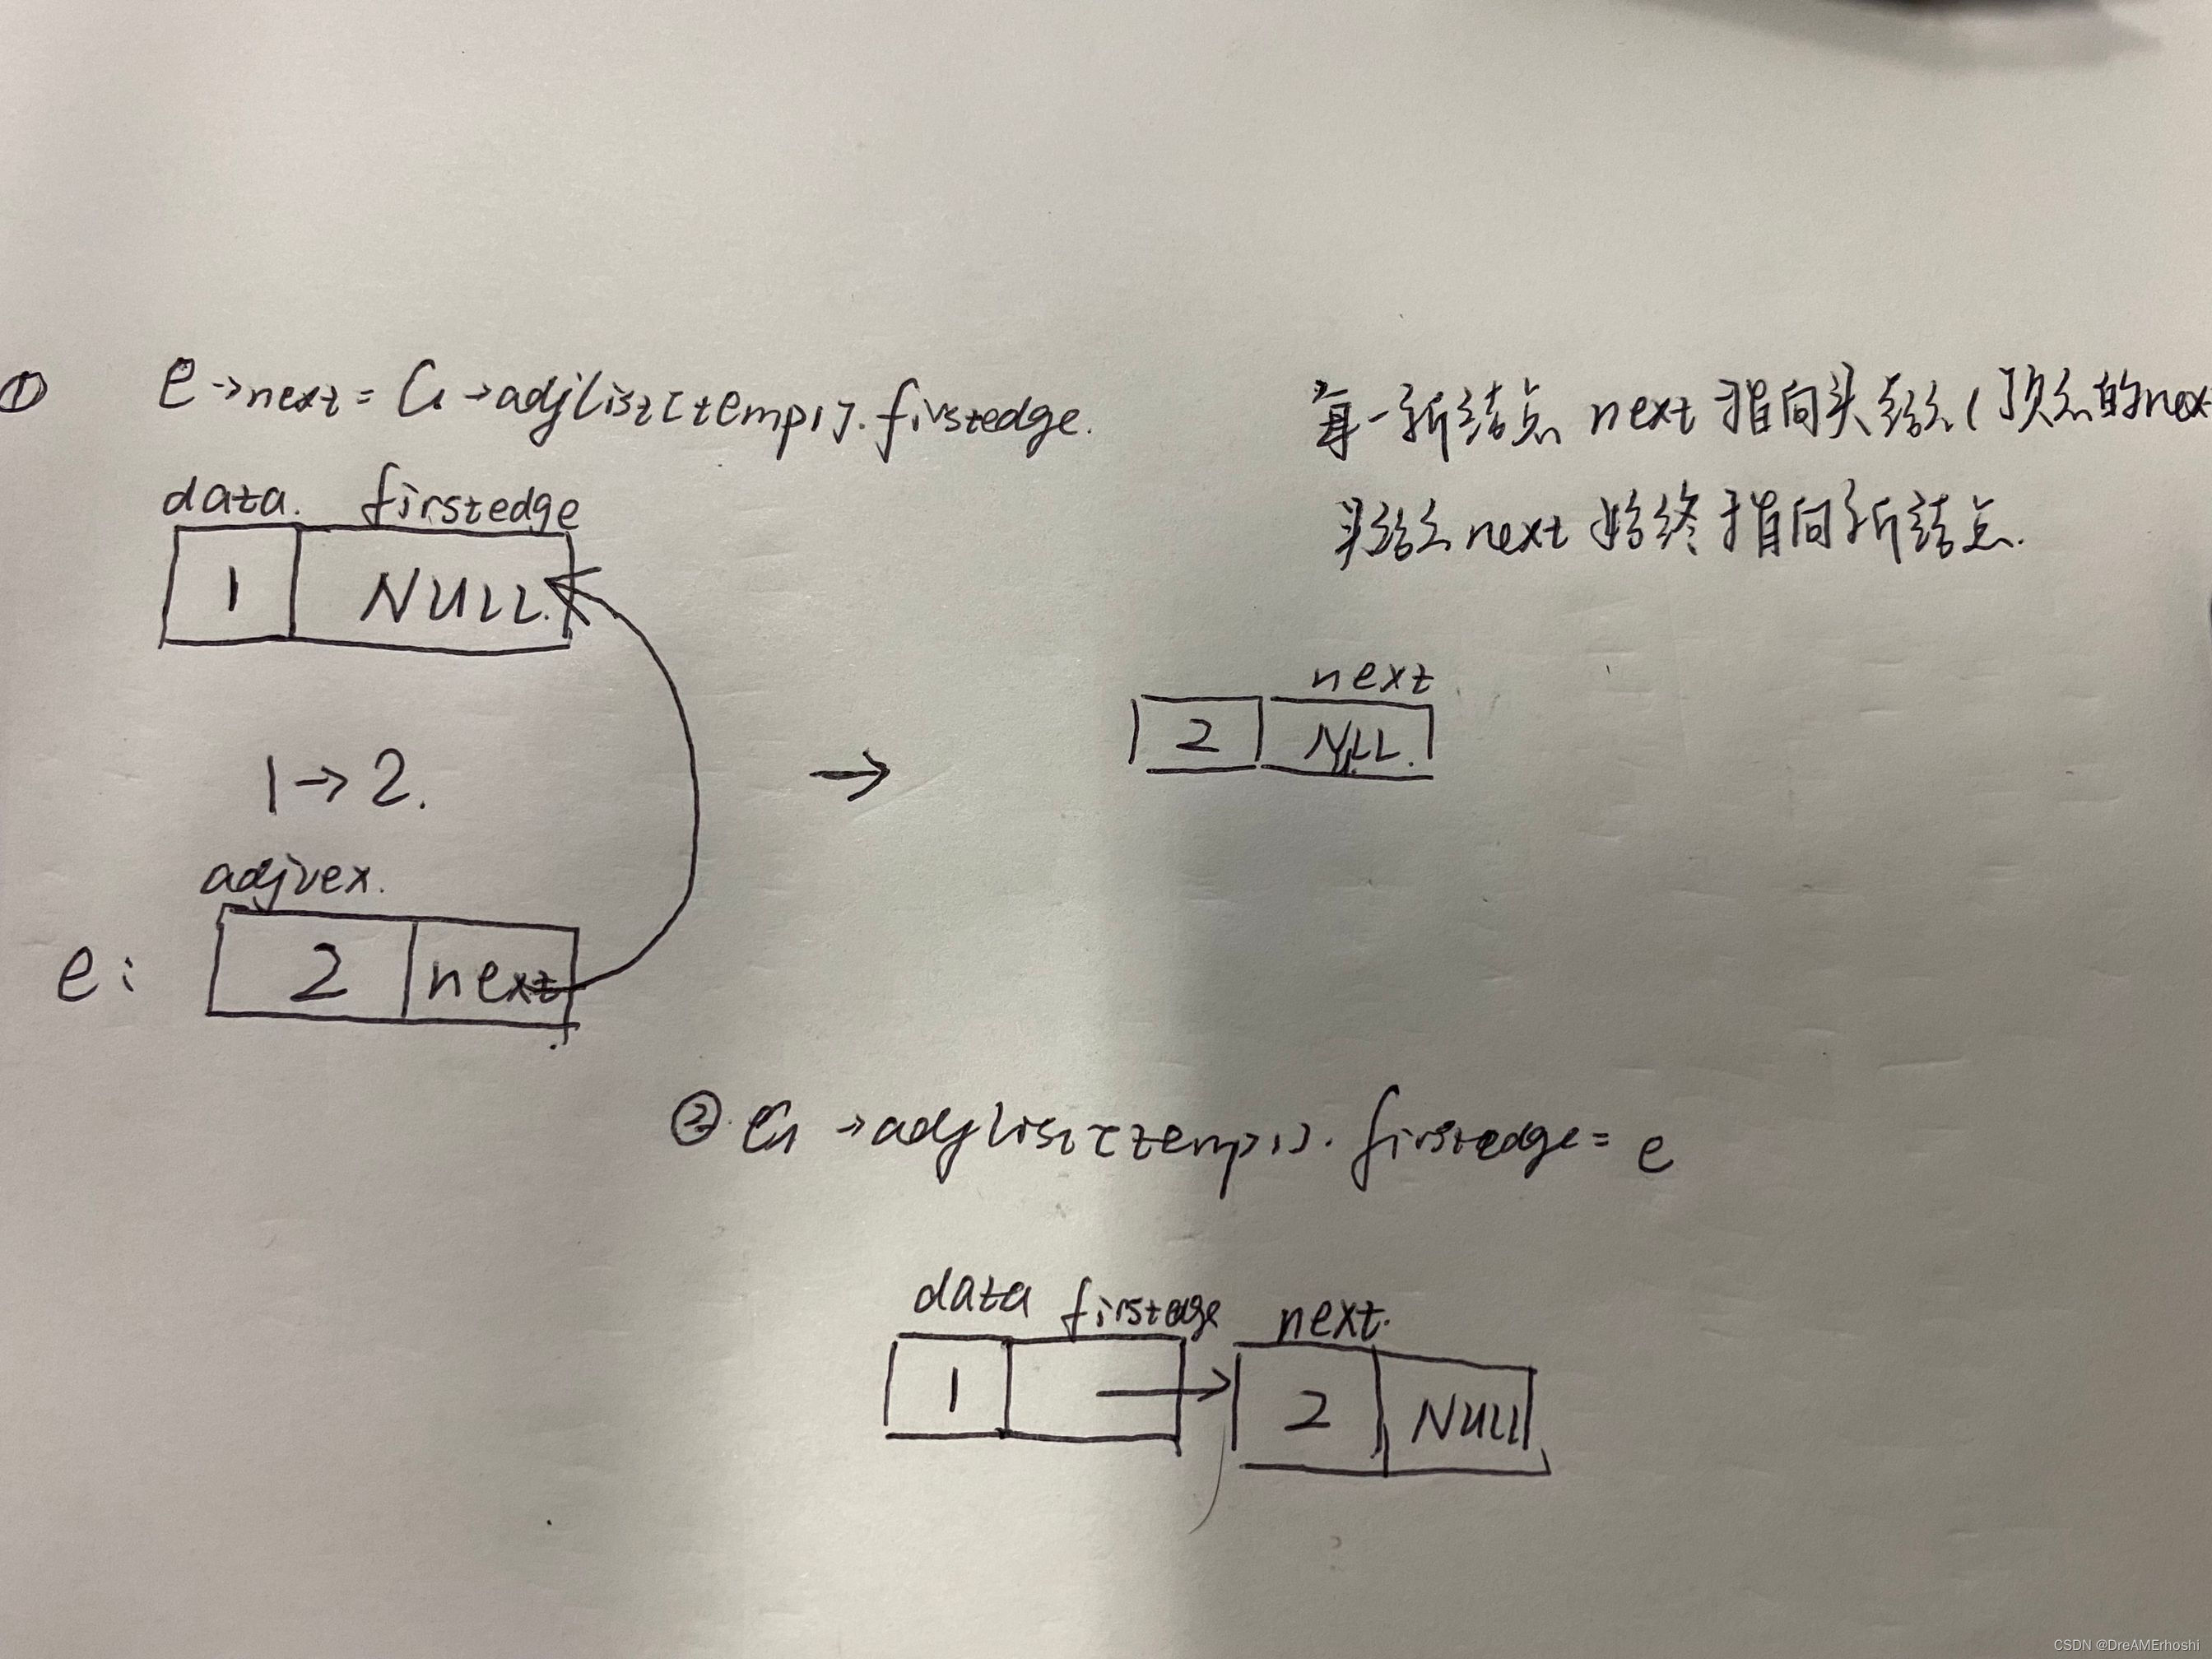 ① e→next = G→adjlist[temp1].firstedge.
每一新结点 next 指向头结点(顶点的nex
头结点 next 始终指向新结点.
data. firstedge
1 NULL.
next
2 NULL.
1→2.
adjvex.
e: 2 next
②. G→adjlist[temp1].firstedge = e
data firstedge next.
1 2 NULL
CSDN @DreAMErhoshi